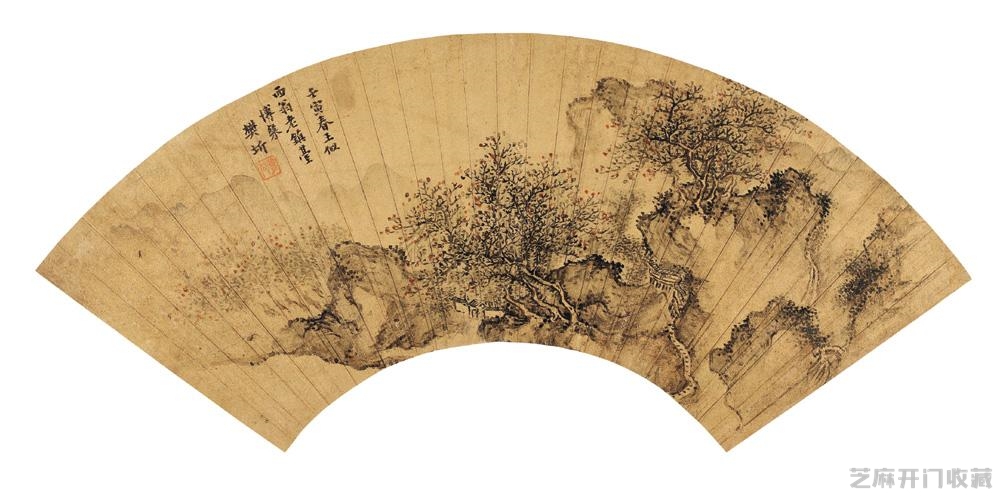 壬寅春王似
西翁老鎮臺
博粲
樊圻
芝麻开门收藏